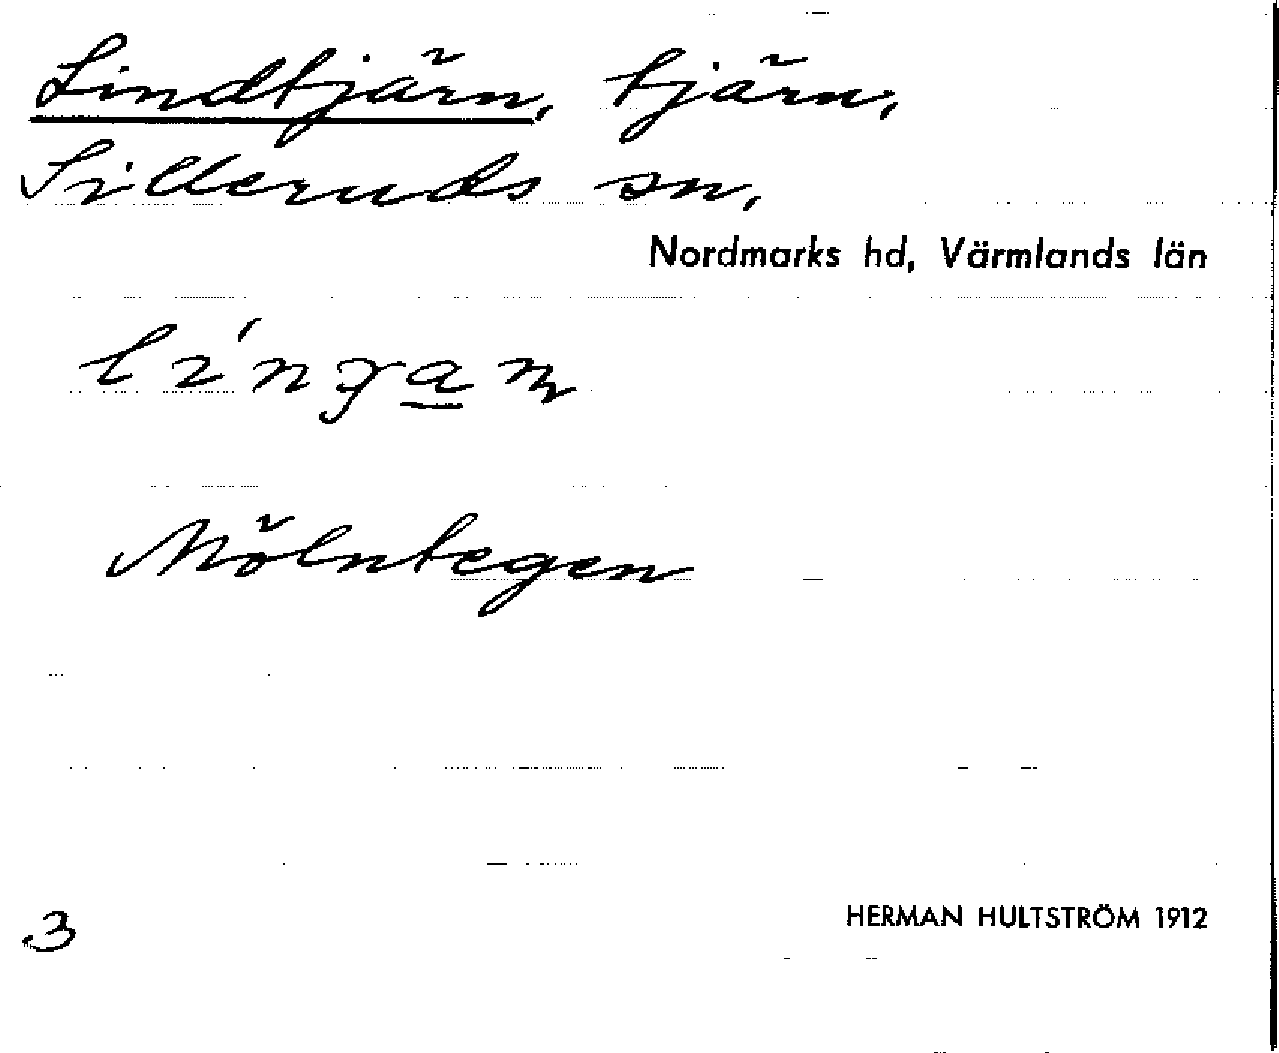 Lindtjärn, tjärn,
Silleruds sn,
Nordmarks hd, Värmlands län
Mölntegen
3
HERMAN HULTSTRÖM 1912